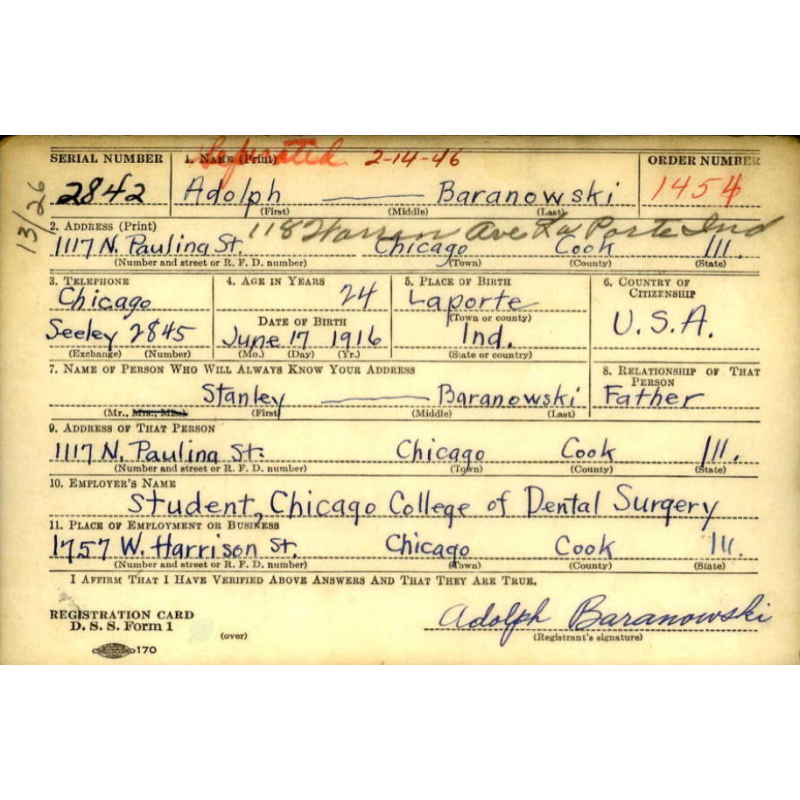 Separated 2-14-46
SERIAL NUMBER 1. NAME (Print) ORDER NUMBER
2842 Adolph Baranowski 1454
(First) (Middle) (Last)
13/26
2. ADDRESS (Print) 118 Warren Ave La Porte Ind
1117 N. Paulina St. Chicago Cook Ill.
(Number and street or R. F. D. number) (Town) (County) (State)
3. TELEPHONE 4. AGE IN YEARS 5. PLACE OF BIRTH 6. COUNTRY OF CITIZENSHIP
Chicago 24 Laporte
DATE OF BIRTH (Town or county) U.S.A.
Seeley 2845 June 17 1916 Ind.
(Exchange) (Number) (Mo.) (Day) (Yr.) (State or country)
7. NAME OF PERSON WHO WILL ALWAYS KNOW YOUR ADDRESS 8. RELATIONSHIP OF THAT PERSON
Stanley Baranowski Father
(Mr., Mrs., Miss) (First) (Middle) (Last)
9. ADDRESS OF THAT PERSON
1117 N. Paulina St. Chicago Cook Ill.
(Number and street or R. F. D. number) (Town) (County) (State)
10. EMPLOYER'S NAME
Student, Chicago College of Dental Surgery
11. PLACE OF EMPLOYMENT OR BUSINESS
1757 W. Harrison St. Chicago Cook Ill.
(Number and street or R. F. D. number) (Town) (County) (State)
I AFFIRM THAT I HAVE VERIFIED ABOVE ANSWERS AND THAT THEY ARE TRUE.
REGISTRATION CARD
D. S. S. Form 1 Adolph Baranowski
(over) (Registrant's signature)
170